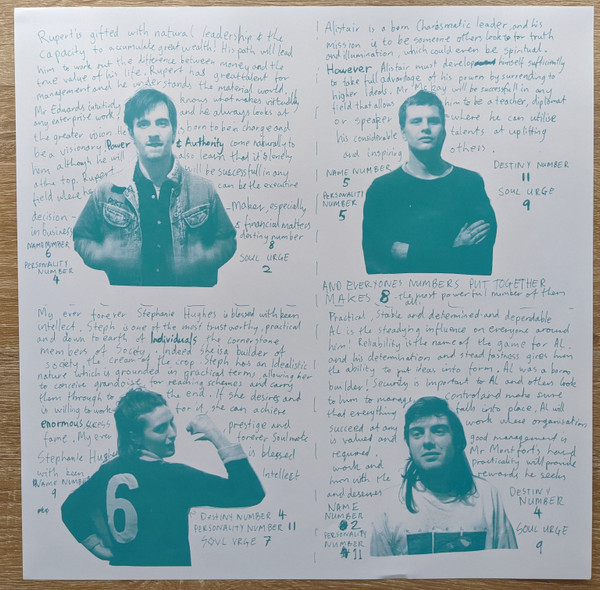 Rupert's gifted with natural leadership & the
capacity to accumulate great wealth! His path will lead
him to work out the difference between money and the
true value of his life. Rupert has great talent for
management and he understands the material world.
Mr Edwards intuitively knows what makes virtually
any enterprise work, and he always looks at
the greater vision. He born to be in charge and
be a visionary. Power & Authority come naturally to
him although he will also learn that it's lonely
at the top. Rupert will be successful in any
field where he can be the executive
decision - - Maker, especially
in business & financial matters
NAME NUMBER destiny number
6 8
PERSONALITY SOUL URGE
NUMBER 2
4
Alistair is a born Charismatic leader, and his
mission is to be someone others look to for truth
and illumination, which could even be spiritual.
However Alistair must develop himself sufficiently
to take full advantage of his powers by surrendering to
higher Ideals. Mr McKay will be successfull in any
field that allows him to be a teacher, diplomat
or speaker where he can utilise
his considerable talents at uplifting
and inspiring others.
NAME NUMBER DESTINY NUMBER
5 11
PERSONALITY SOUL URGE
NUMBER 9
5
AND EVERYONES NUMBERS PUT TOGETHER
MAKES 8 - the most powerful number of them
all.
My ever forever Stephanie Hughes is blessed with keen
intellect. Steph is one of the most trustworthy, practical
and down to earth of Individuals, the cornerstone
members of Society. Indeed she is a builder of
society, the cream of the crop. Steph has an Idealistic
nature which is grounded in practical terms, allowing her
to conceive grandoise, far reaching schemes and carry
them through to the end. If she desires and
is willing to work for it, she can achieve
enormous success prestige and
fame. My ever forever Soulmate
Stephanie Hughes is blessed
with keen Intellect
NAME NUMBER
9
DESTINY NUMBER 4
PERSONALITY NUMBER 11
SOUL URGE 7
Practical, Stable and determined and dependable
AL is the steadying influence on everyone around
him! Reliability is the name of the game for AL.
and his determination and steadfastness gives him
the ability to put ideas into form. AL was a born
builder! Security is important to AL and others look
to him to manage, control and make sure
that everything falls into place. AL will
succeed at any work where organisations
is valued and good management is
required. Mr Montfort's hard
work and practicality will provide
him with the rewards he seeks
and deserves DESTINY
NAME NUMBER
NUMBER 4
2
PERSONALITY SOUL URGE
NUMBER 9
11
6